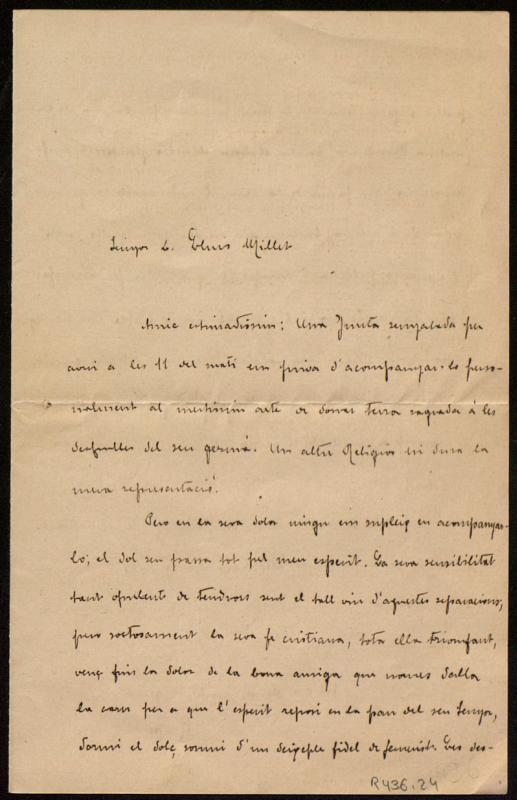 Senyor D. Lluis Millet
Amic estimadíssim: Una Junta senyalada per
avui a les 11 del matí em priva d'acompanyar-lo perso-
nalment al mentíssim acte de donar terra sagrada á les
despulles del seu germá. Un altre Religiós hi dura la
meva representació.
Pero en la seva dolor ningú em supleix en acompanyar-
lo; el dol seu passa tot pel meu esperit. La seva sensibilitat
tant opulent de tendrors sent el tall viu d'aquestes separacions;
pero sortosament la seva fe cristiana, tota ella triomfant,
venç fins la dolor de la bona amiga que nomes dalla
la carn per a que l'esperit reposi en la pau del seu Senyor,
dormi el dolç somni d'un deixeple fidel de Jesucrist. Les des-
R436.24